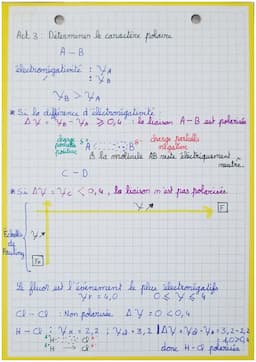 Act 3 : Déterminer le caractère polaire
A – B
électronégativité : χA
: χB
χB > χA
* Si la différence d'électronégativité :
Δχ = χB - χA ⩾ 0,4 : la liaison A-B est polarisée
charge partielle positive δ+ A B δ- charge partielle négative
⚠ la molécule AB reste électriquement neutre.
C – D
* Si Δχ = χC < 0,4, la liaison n'est pas polarisée.
χ↗ F
Echelle de Pauling
χ↗
Fr
Le fluor est l'événement le plus électronégatif
χF = 4,0 0 ≤ χ ≤ 4
Cl – Cl : Non polarisée Δχ = 0 < 0,4
H – Cl : χH = 2,2 ; χCl = 3,2 | Δχ = χCl - χH = 3,2 - 2,2
= 1,0 > 0,4
δ+ H – Cl δ-
H – Cl donc H-Cl polarisée